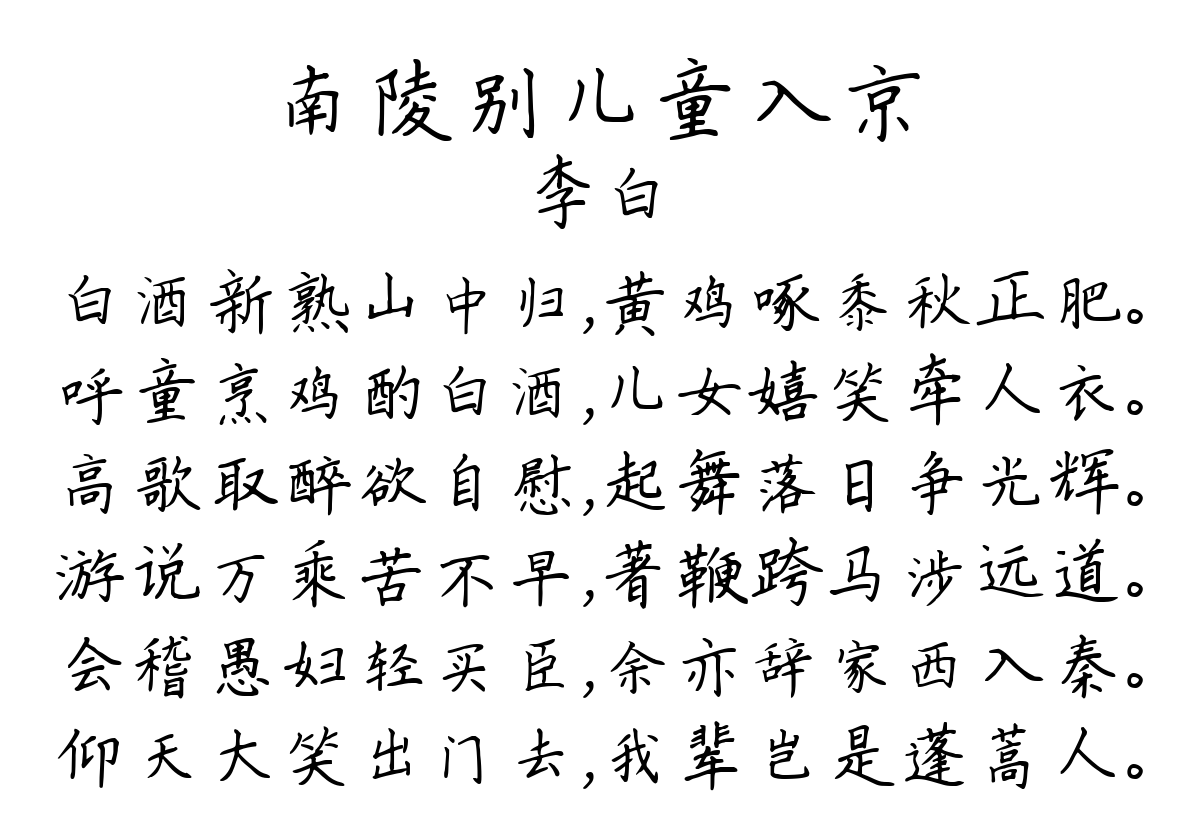 南陵别儿童入京
李白
白酒新熟山中归,黄鸡啄黍秋正肥。
呼童烹鸡酌白酒,儿女嬉笑牵人衣。
高歌取醉欲自慰,起舞落日争光辉。
游说万乘苦不早,著鞭跨马涉远道。
会稽愚妇轻买臣,余亦辞家西入秦。
仰天大笑出门去,我辈岂是蓬蒿人。